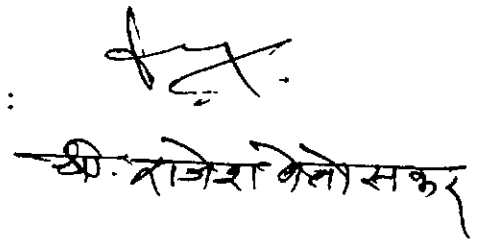 :
श्री. राजेश वेलोसकर